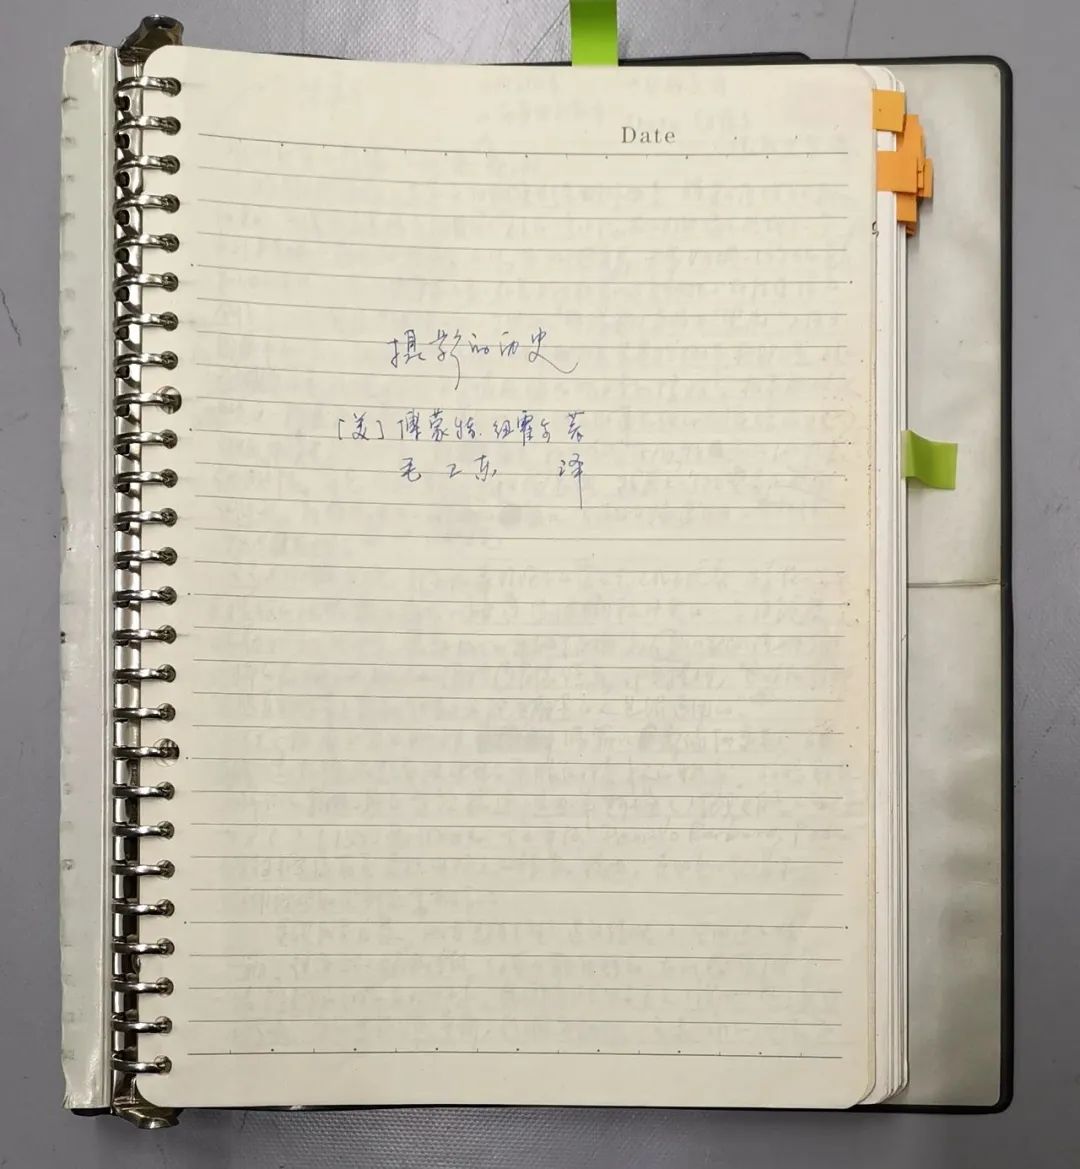 Date
摄影的历史
[美] 博蒙特·纽霍尔 著
毛卫东 译